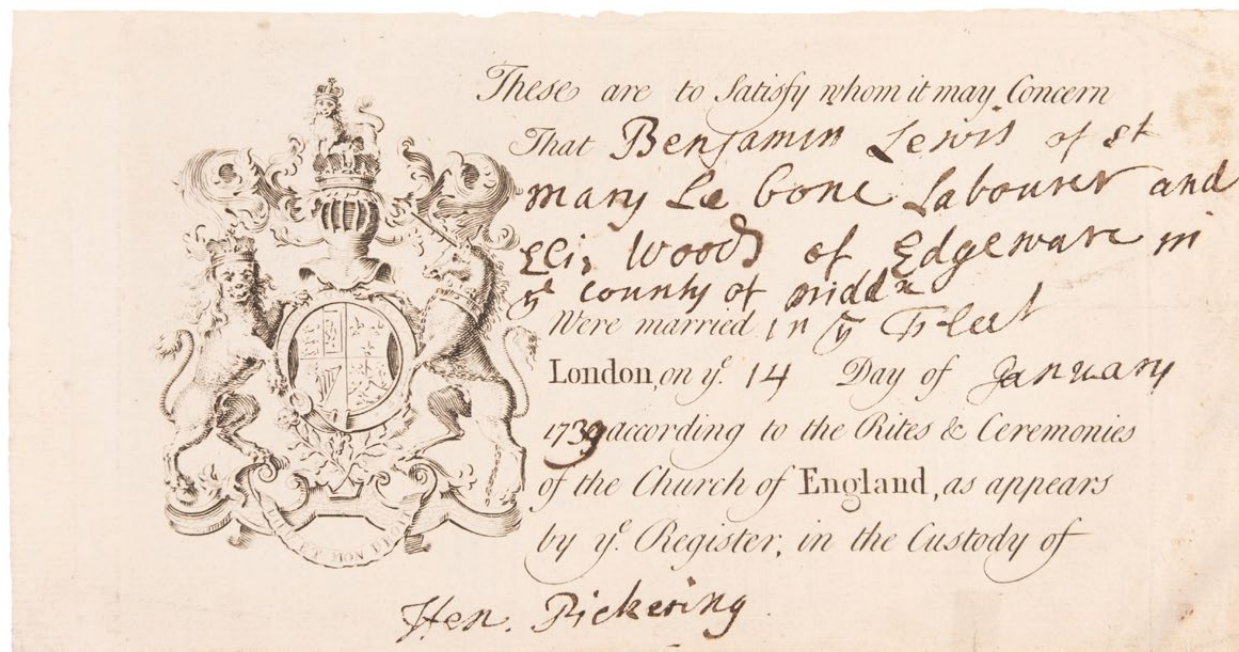 These are to Satisfy whom it may Concern
That Benjamin Lewis of st
mary Le bone Labourer and
Eliz Wood of Edgeware in
ye county of midd x
Were married in ye Fleet
London, on ye. 14 Day of January
1739 according to the Rites & Ceremonies
of the Church of England, as appears
by ye. Register, in the Custody of
Hen. Pickering
ET MON